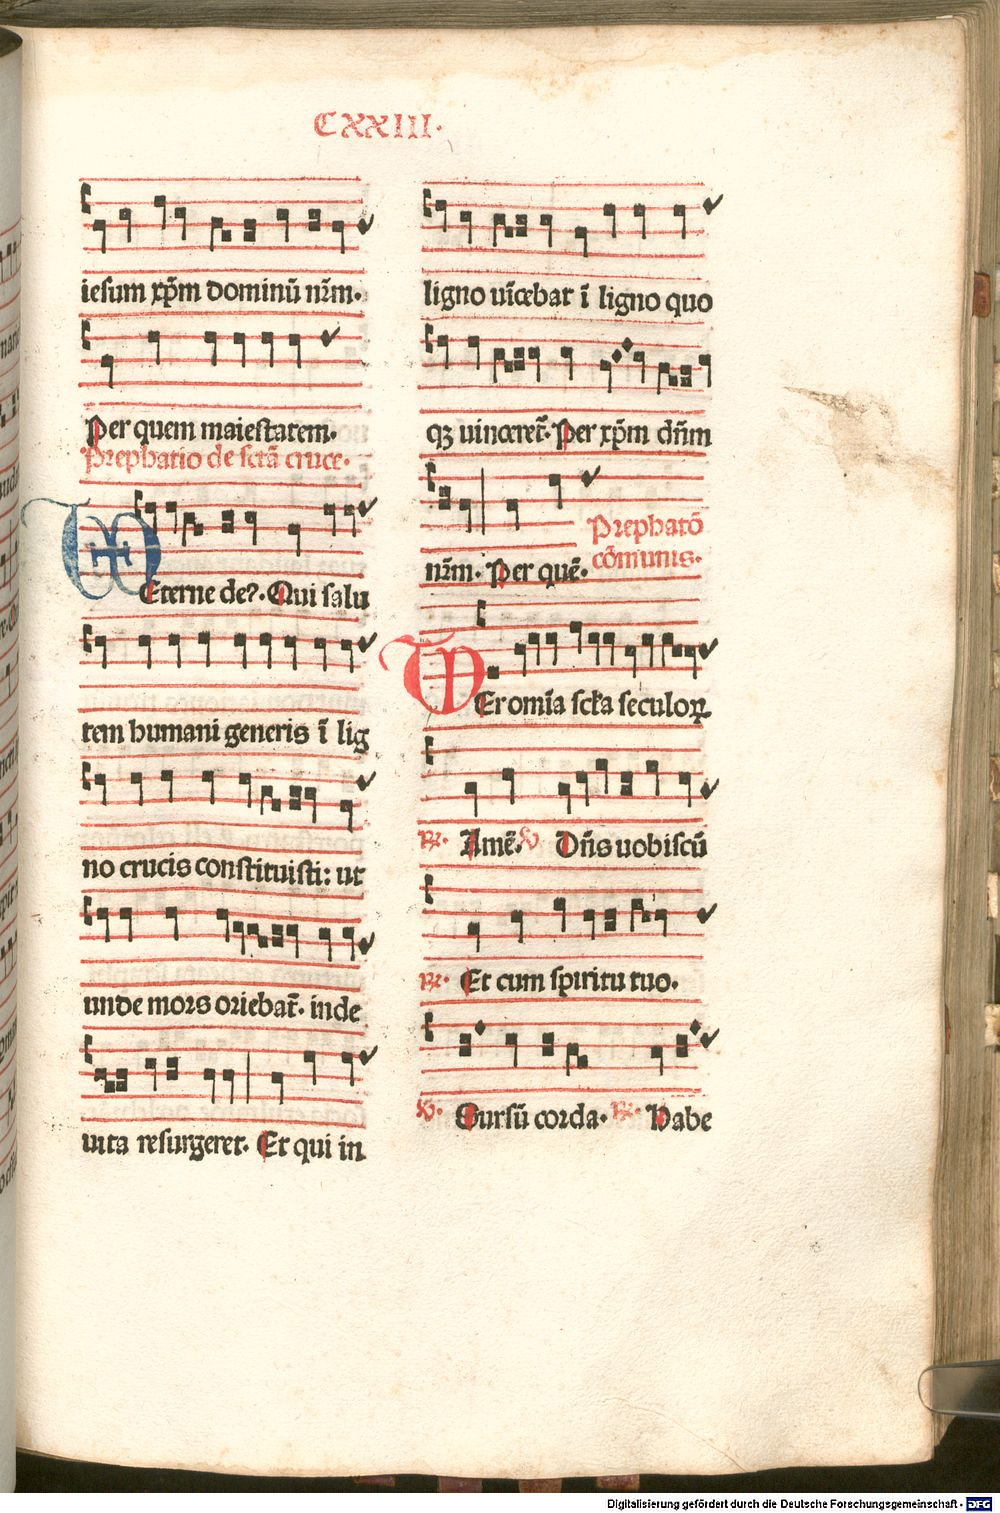 CXXIII.
iesum xp̄m dominū nr̄m.
Per quem maiestatem.
Prephatio de sctā cruce.
Eterne de?. Qui salu
tem humani generis ī lig
no crucis constituisti: ut
unde mors oriebat̄. inde
uita resurgeret. Et qui in
ligno uīcebat ī ligno quo
qꝫ uinceret̄. Per xp̄m dn̄m
nr̄m. Per quē.
Prephatō
cōmunis.
Per omīa scl̄a seculoꝝ
℟. Amē. ℣ Dn̄s uobiscū
℟. Et cum spiritu tuo.
℣. Sursū corda. ℟. Habe
Digitalisierung gefördert durch die Deutsche Forschungsgemeinschaft - DFG